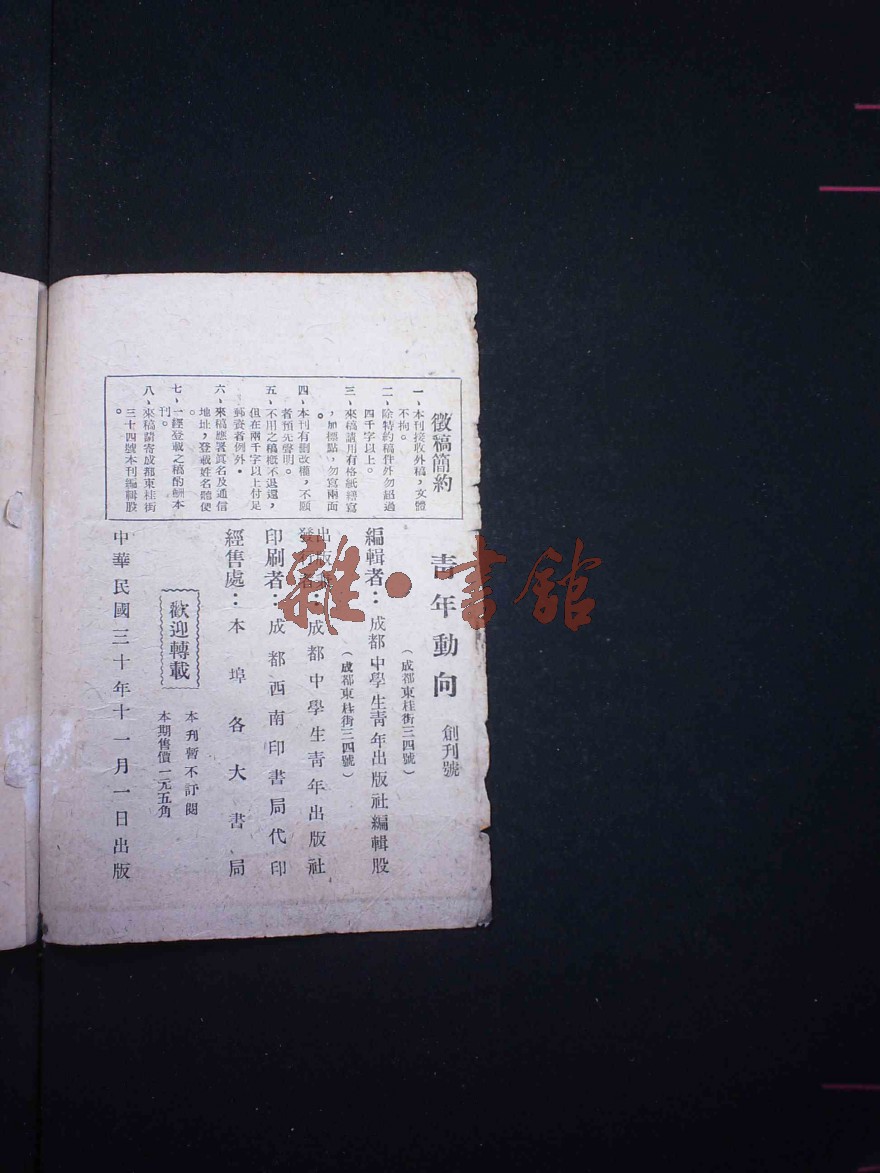 徵稿簡約
一、本刊接收外稿，文體
不拘。
二、除特約稿件外勿超過
四千字以上。
三、來稿請用有格紙繕寫
，加標點，勿寫兩面
。
四、本刊有刪改權，不願
者預先聲明。
五、不用之稿概不退還，
但在兩千字以上付足
郵資者例外。
六、來稿應署眞名及通信
地址，登載姓名聽便
。
七、一經登載之稿酌酬本
刊。
八、來稿請寄成都東桂街
三十四號本刊編輯股
。
靑年動向 創刊號
（成都東桂街三四號）
編輯者：成都中學生靑年出版社編輯股
（成都東桂街三四號）
出版兼
發行者：成都中學生靑年出版社
印刷者：成都西南印書局代印
經售處：本埠各大書局
歡迎轉載
本刊暫不訂閱
本期售價一元五角
中華民國三十年十一月一日出版
雜·書館